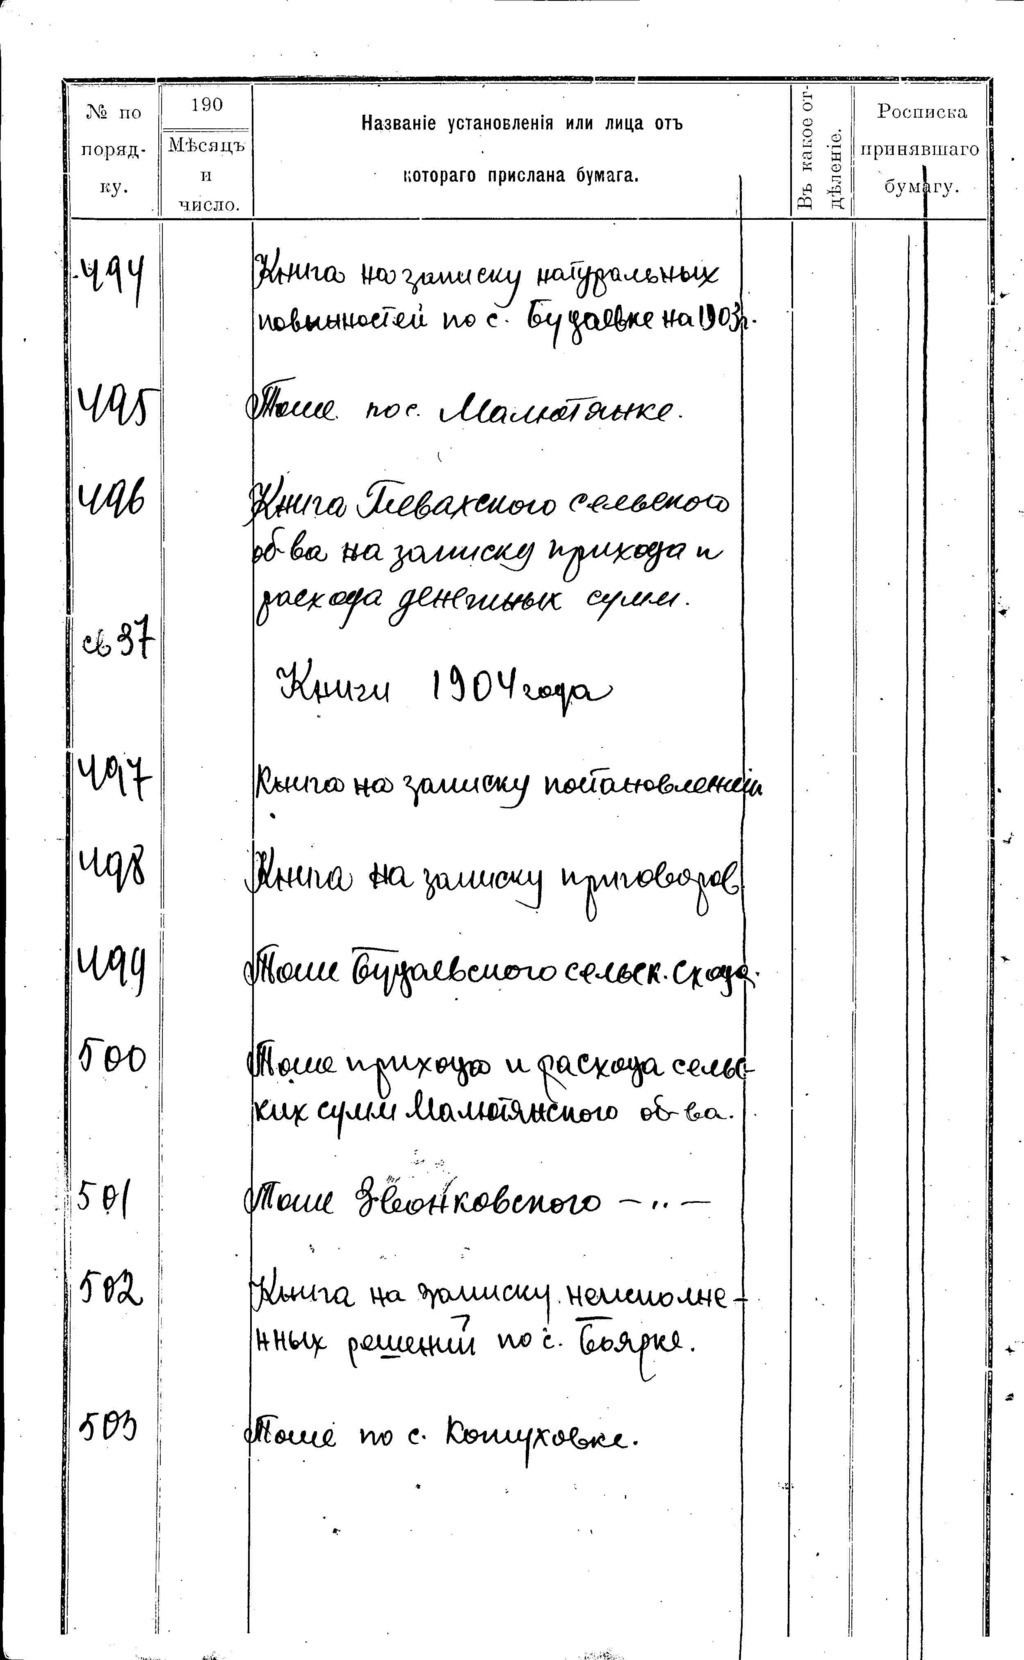 № по поряд-ку.
190
Мѣсяцъ и число.
Названіе установленія или лица отъ
котораго прислана бумага.
Въ какое от-дѣленіе.
Росписка принявшаго бумагу.
494 Книга на записку натуральных
повинностей по с. Будаевке на 1903г.
495 Тоже по с. Малютянке.
496 Книга Глевахского сельского
об-ва на записку прихода и
расхода денежных сумм.
св 37
Книги 1904 года
497 Книга на записку постановлений
498 Книга на записку приговоров
499 Тоже Будаевского сельск. схода.
500 Тоже прихода и расхода сельс-
ких сумм Малютянского об-ва.
501 Тоже Звонковского — ,, —
502 Книга на записку неисполне-
нных решений по с. Боярке.
503 Тоже по с. Кожуховке.